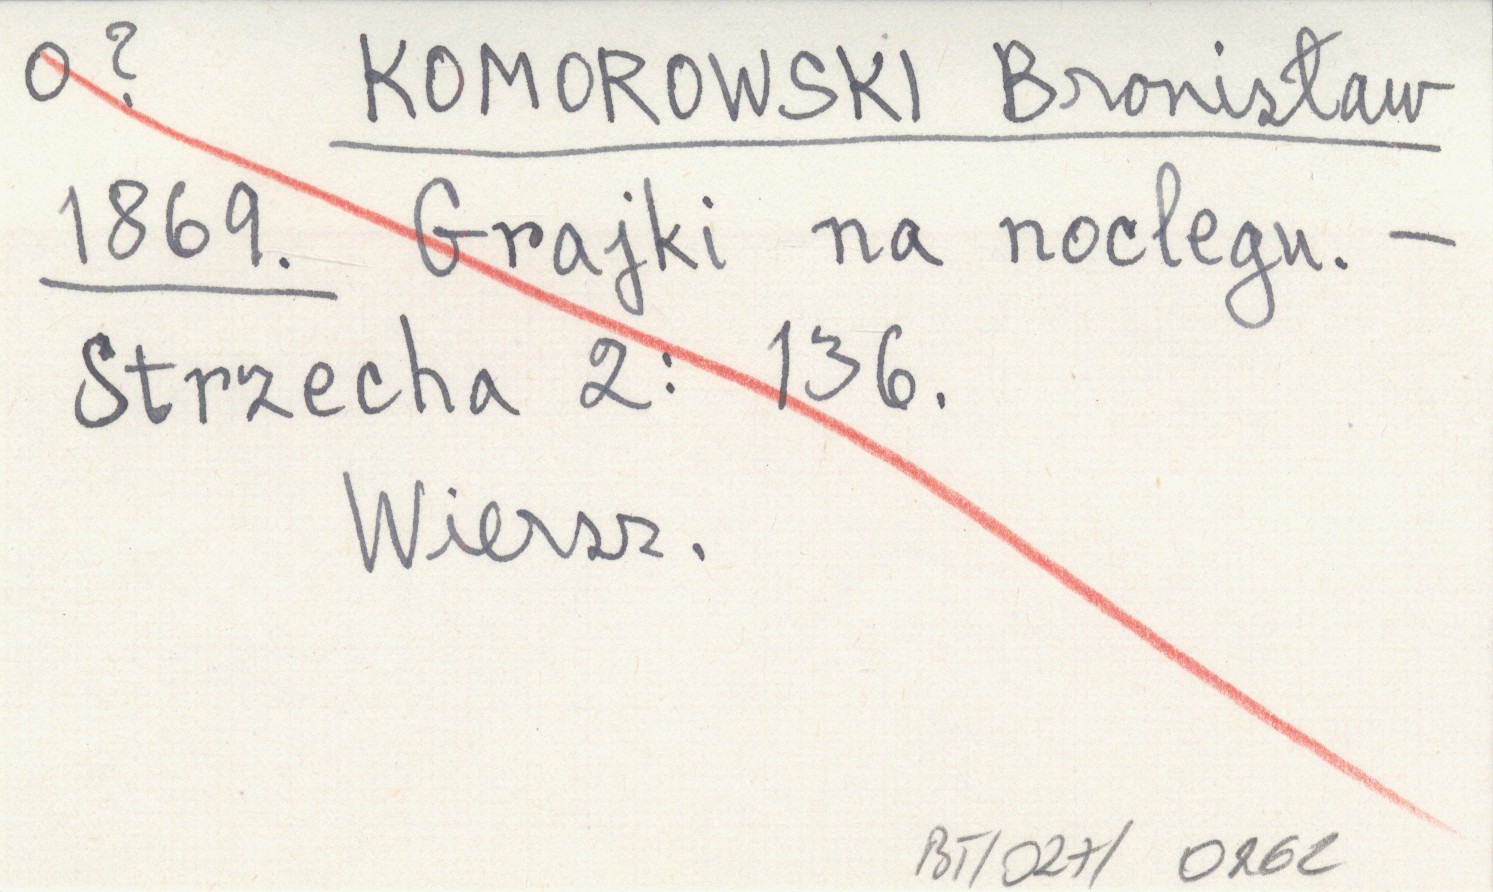 O? KOMOROWSKI Bronisław
1869. Grajki na noclegu. –
Strzecha 2: 136.
Wiersz.
BT/027/ 0262